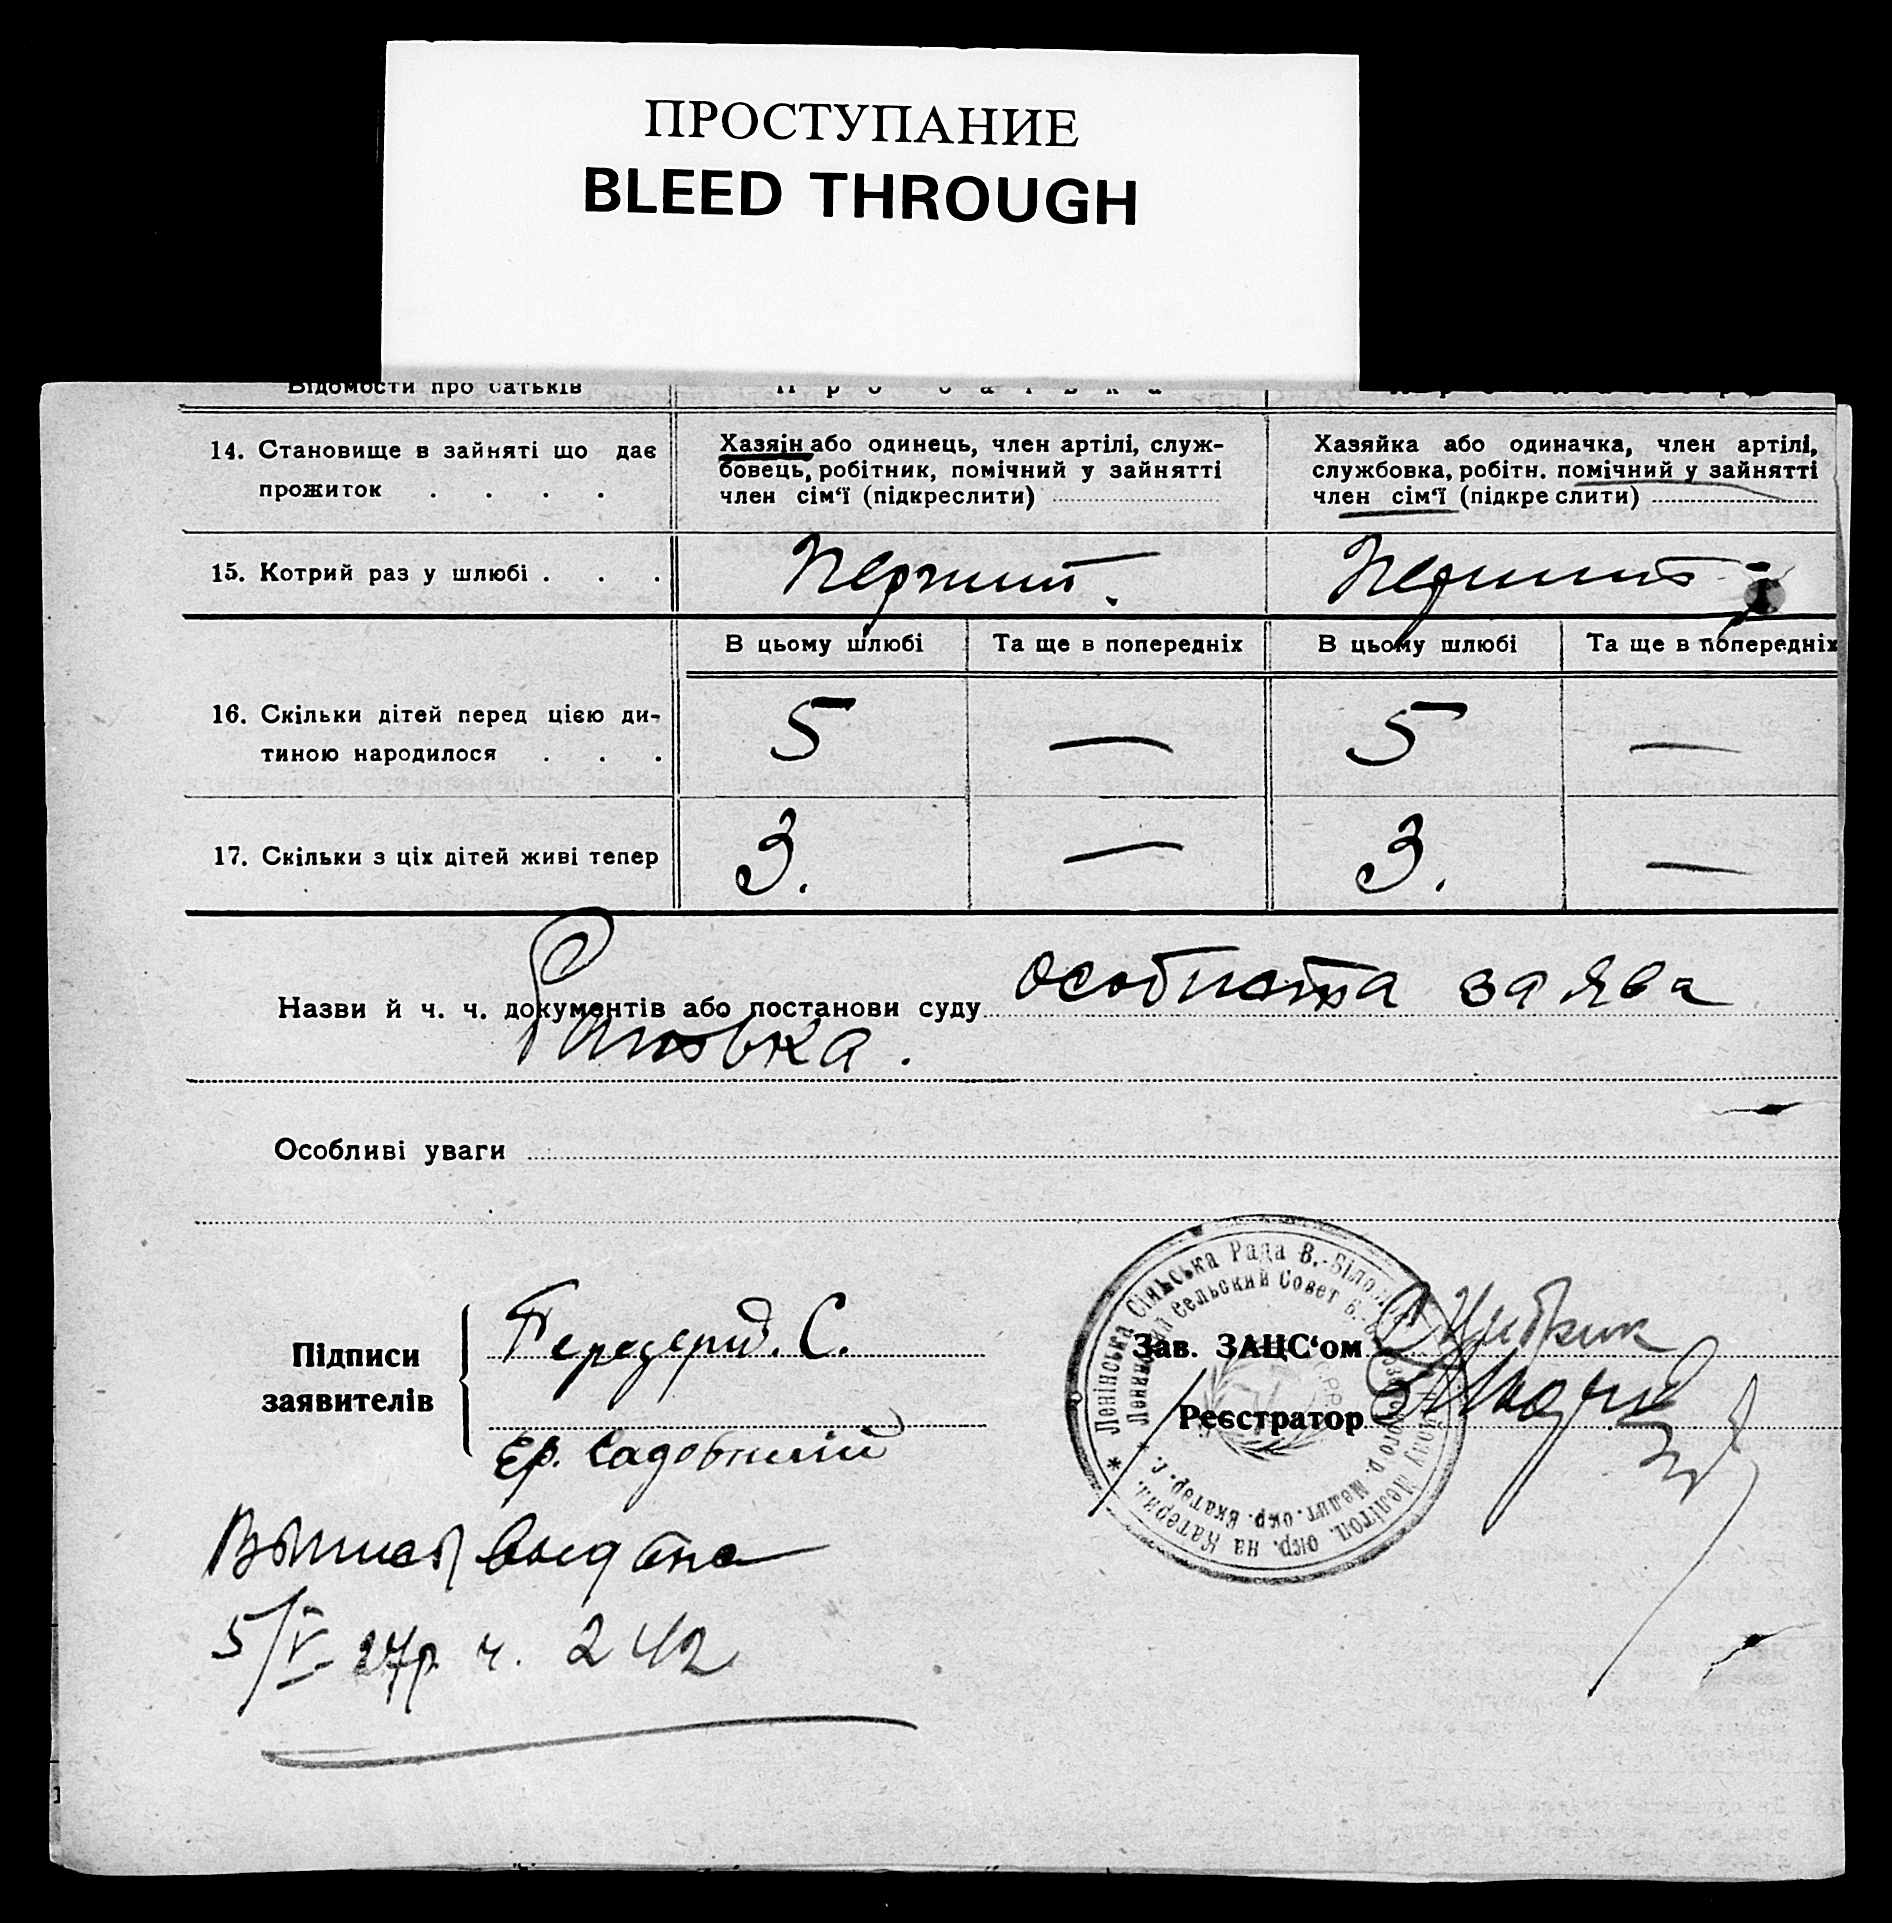 ПРОСТУПАНИЕ
BLEED THROUGH
Відомости про батьків
Про батька
14. Становище в зайняті що дає
прожиток . . . .
Хазяїн або одинець, член артілі, служ-
бовець, робітник, помічний у зайнятті
член сім'ї (підкреслити)
Хазяйка або одиначка, член артілі,
службовка, робітн. помічний у зайнятті
член сім'ї (підкре слити)
15. Котрий раз у шлюбі . . .
Перший.
Перший
В цьому шлюбі
Та ще в попередніх
В цьому шлюбі
Та ще в попередніх
16. Скільки дітей перед цією ди-
тиною народилося . . .
5 — 5 —
17. Скільки з ціх дітей живі тепер
3. — 3. —
Назви й ч. ч. документів або постанови суду особиста заява
Особливі уваги
Підписи
заявителів
С.
Садовничий
Зав. ЗАЦС'ом
Реєстратор
Ленінська Сільська Рада В.-Біло
Сельский Совет
Мелітоп. окр. на Катерин.
Мелит. окр. Екатер. г.
Выпись выдана
5/V 27р. ч. 242